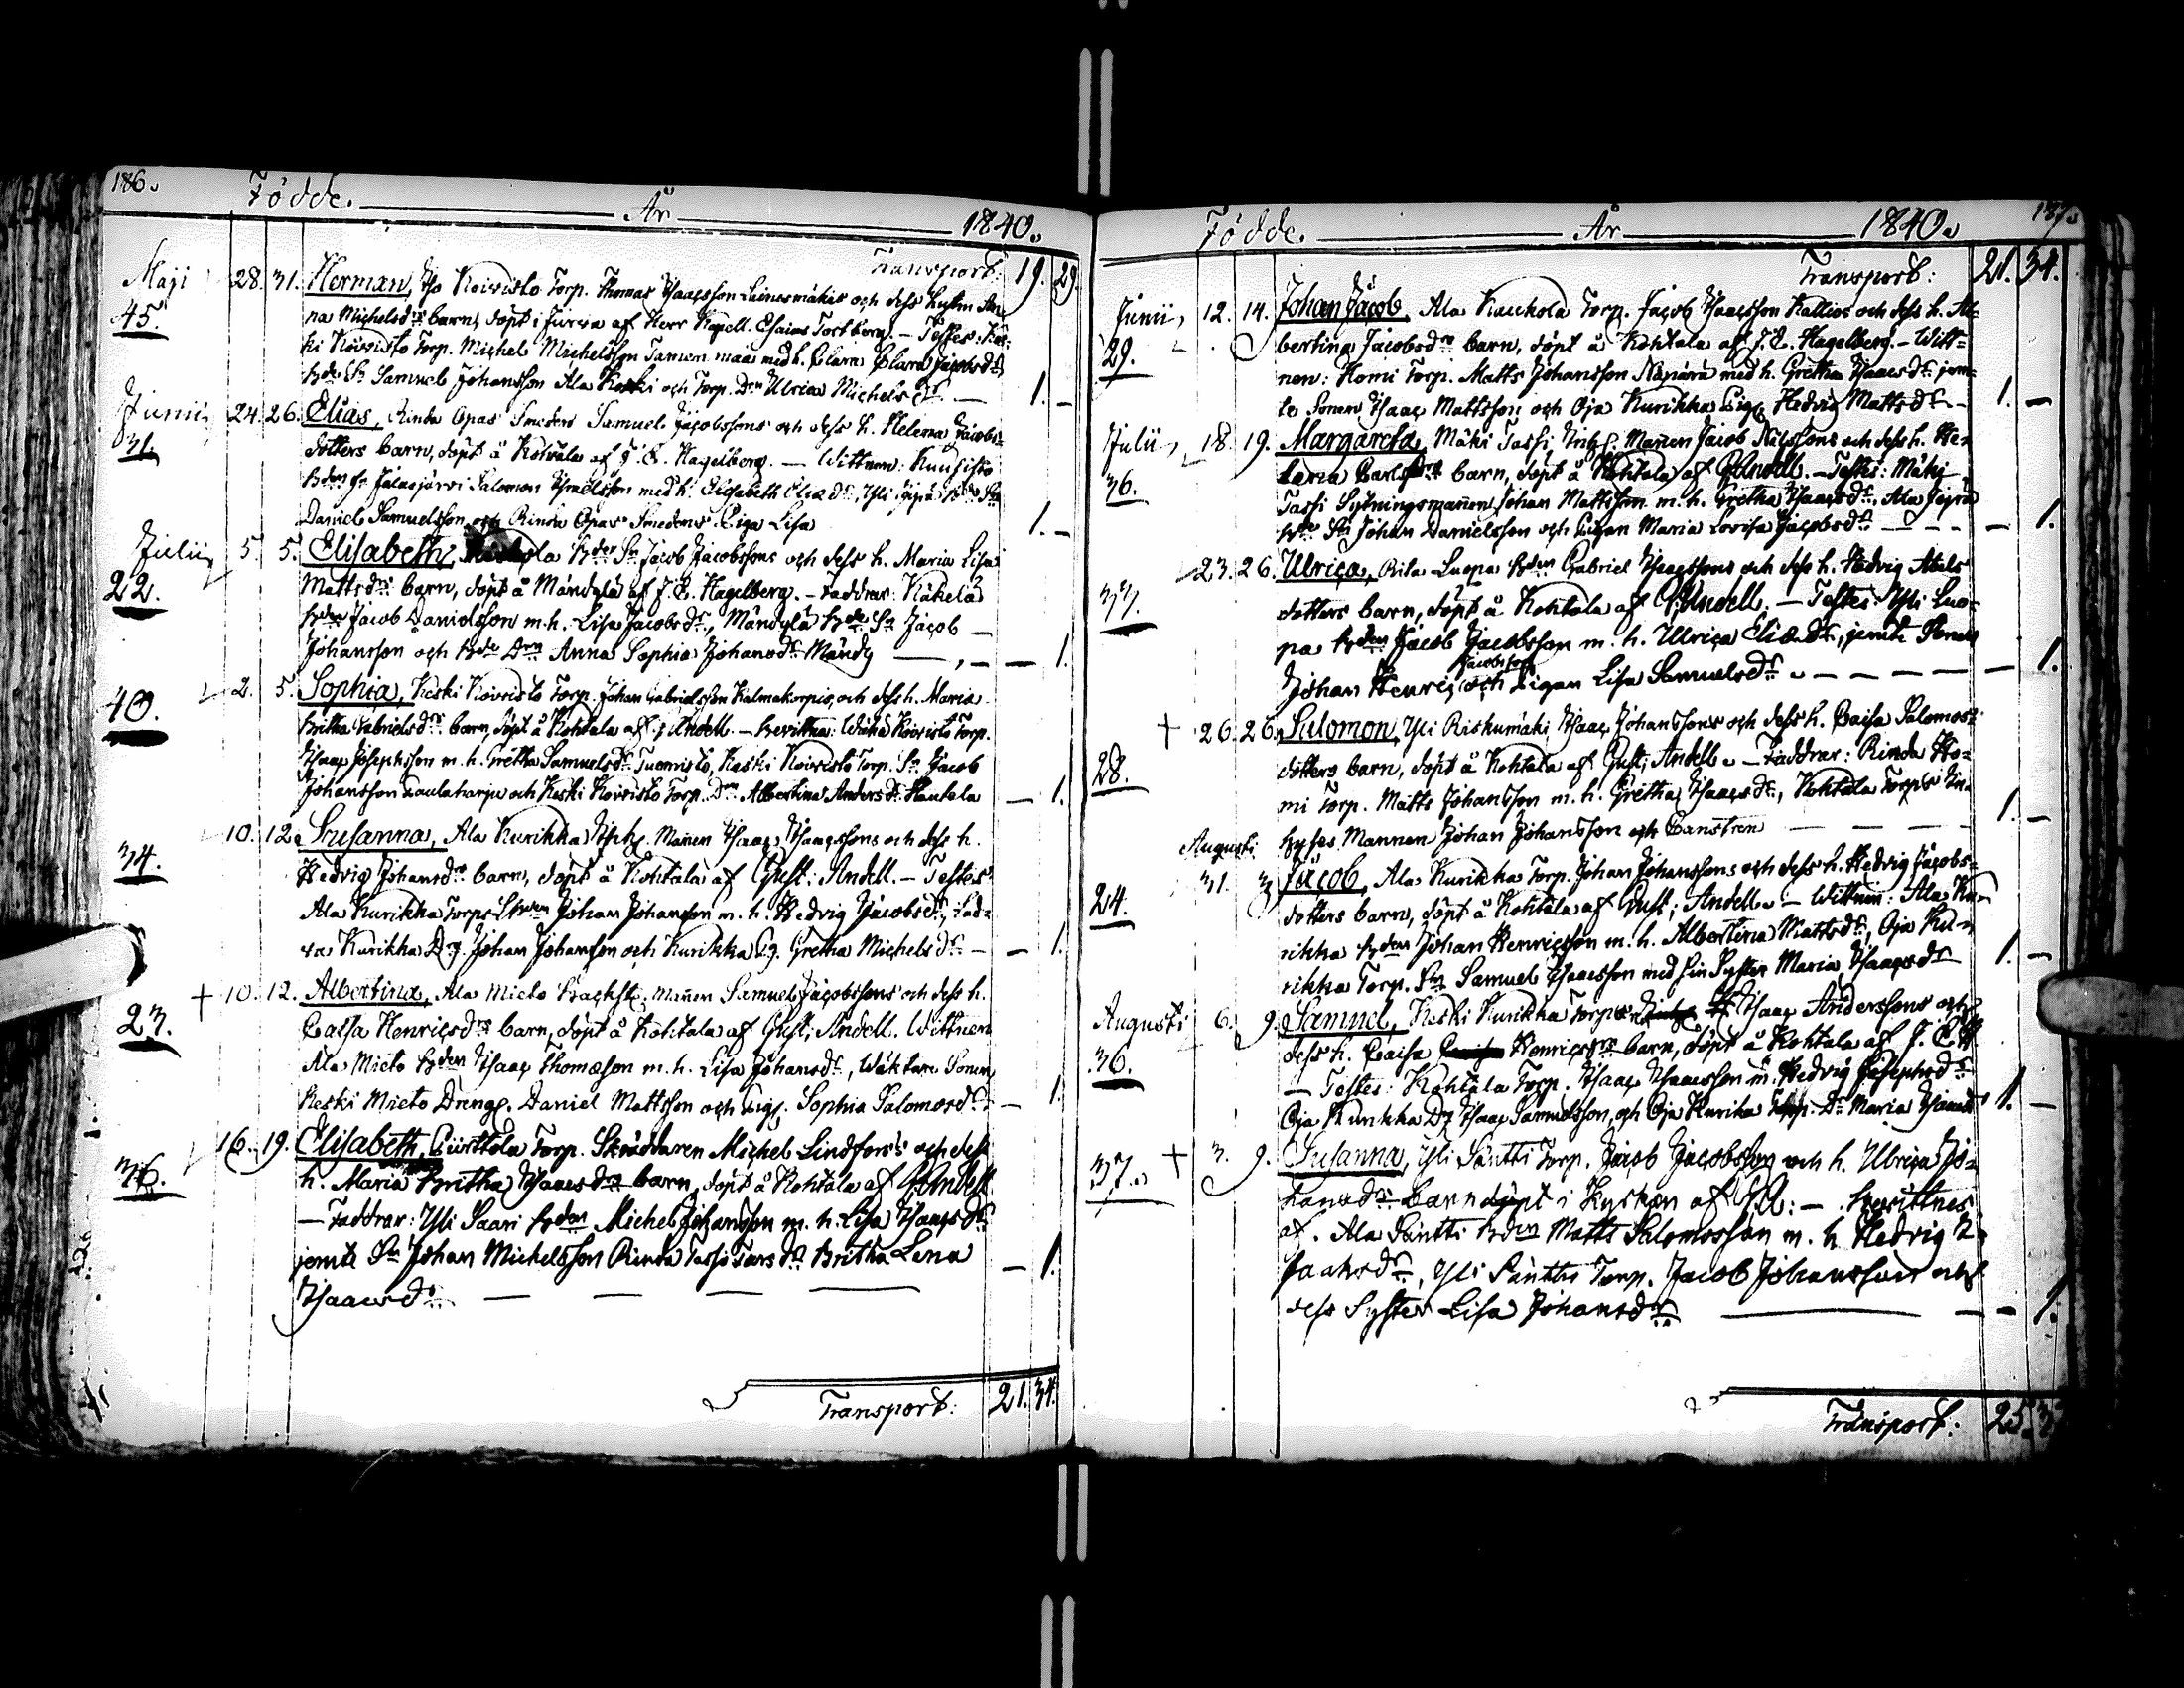 186.
Födde. År 1840.
Transport: 19. 29.
Maji 28. 31. Herman, Iso Koivisto Torp. Thomas Isaacsson och dess hustru An-
45.
na Michelsdrs barn, döpt i Jurva af Herr Kapell. Esaias Tortberg. – Testes: Kos-
ki Koivisto Torp. Michel Michelsson med h. Clara Jacobsdr,
Sn Samuel Johansson Ala Koski och Torp. Drn Ulrica Michelsdr — 1. –
Junii 24. 26. Elias, Rinda Opas Smeden Samuel Jacobssons och dess h. Helena Jacobs-
31.
dotters barn, döpt å Kohtala af J. E. Hagelberg. — Wittnen:
fr. Jalasjärvi Salomon Israelsson med h. Elisabeth Eliædr,
Daniel Samuelsson och Rinda Opas Smedens Piga Lisa 1. –
Julii 5. 5. Elisabeth, Sn Jacob Jacobssons och dess h. Maria Lisa
22.
Mattsdrs barn, döpt å Mändylä af J. E. Hagelberg. – Faddrar: Käkelä
Bden Jacob Danielsson m. h. Lisa Jacobsdr, Mändylä Bde Sn Jacob –
Johansson och Bde Drn Anna Sophia Johansdr Mändy — 1.
2. 5. Sophia, Keski Koivisto Torp. Johan Gabrielsson Kalmakorpis, och dess h. Maria
40.
Britha Gabrielsdrs barn, döpt å Kohtala af G. Andell. – Bevittna: Wähä Koivisto Torp.
Isaac Josephsson m. h. Gretha Samuelsdr Tuomisto, Keski Koivisto Torp. Sn Jacob
Johansson Laulaharju och Keski Koivisto Torp. Drn Albertina Andersdr Hautala – 1.
10. 12. Susanna, Ala Kurikka Inhs. Mannen Isaac Isaacssons och dess h.
34.
Hedvig Johansdrs barn, döpt å Kohtala af Gust: Andell. – Testes
Ala Kurikka Torps Johan Johansson m. h. Hedvig Jacobsdr,
Kurikka Drg. Johan Johansson och Kurikka Pg. Gretha Michelsdr – – 1.
+ 10. 12. Albertina, Ala Mieto Backst. Mannen Samuel Jacobssons och dess h.
23.
Caisa Henricsdrs barn, döpt å Kohtala af Gust; Andell. Wittnen
Ala Mieto Bden Isaac Thomasson m. h. Lisa Johansdr, Wäktare Sonen
Keski Mieto Dreng. Daniel Mattsson och Pig. Sophia Salomosdr. – 1.
16. 19. Elisabeth, Torp. Skräddaren Michel Lindfors's och dess
36.
h. Maria Britha Isaacsdrs barn, döpt å Kohtala af G. Andell
– Faddrar: Yli Saari Bden Michel Johansson m. h. Lisa Isaacsdr
jemte Sn Johan Michelsson Rinda Tassi Torps dr Britha Lena – 1.
Isaacsdr — — — —
Transport: 21. 34.
187.
Födde. År 1840.
Transport: 21. 34.
Junii 12. 14. Johan Jacob, Ala Kauhola Torp. Jacob Isaacsson Kallios och dess h. Al-
29.
bertina Jacobsdrs barn, döpt å Kohtala af J. E. Hagelberg. – Witt-
nen: Homi Torp. Matts Johansson Nenärä med h. Gretha Isaacsdr jem-
te Sonen Isaac Mattsson och Oja Kurikka Pig. Hedvig Mattsdr – 1. –
Julii 18. 19. Margareta, Mäki Tassi Inhs. Mannen Jacob Nilssons och dess h. He-
36.
lena Carlsdrs barn, döpt å Kohtala af G. Andell. – Testes: Mäki
Tassi Sytningsmannen Johan Mattsson m. h. Gretha Isaacsdr, Ala
Bde Sn Johan Danielsson och Pigan Maria Lovisa Jacobsdr – – – 1.
23. 26. Ulrica, Rita Luopa Bden Gabriel Isaacssons och dess h. Hedvig Abels
37.
dotters barn, döpt å Kohtala af G. Andell. – Testes: Yli Luo-
pa Bden Jacob Jacobsson m. h. Ulrica Eliædr, jemte Sonen
Johan Henric Jacobsson och Pigan Lisa Samuelsdr – – – – – 1.
+ 26. 26. Salomon, Yli Riskumäki Isaac Johanssons och dess h. Caisa Salomos-
28.
dotters barn, döpt å Kohtala af Gust; Andell. – Faddrar: Rinda Ho-
mi Torp. Matts Johansson m. h. Gretha Isaacsdr, Kohtala Torps In-
hyses Mannen Johan Johansson och Canstren — — — 1. –
Augusti 31. 3. Jacob, Ala Kurikka Torp. Johan Johanssons och dess h. Hedvig Jacobs-
24.
dotters barn, döpt å Kohtala af Gust; Andell. – Wittnen: Ala Ku-
rikka Bden Johan Henricsson m. h. Albertina Mattsdr, Oja Ku-
rikka Torp. Sn Samuel Isaacsson med sin Syster Maria Isaacsdr 1. –
Augusti 6. 9. Samuel, Keski Kurikka Torps Isaac Anderssons och
36.
dess h. Caisa Henricsdrs barn, döpt å Kohtala af J. E. H.
– Testes: Kohtala Torp. Isaac Isaacsson m. Hedvig Josephsdr
Oja Kurikka Dg Isaac Samuelsson, och Oja Kurikka Torp. Dr Maria Isaacsdr 1. –
+ 3. 9. Susanna, Yli Säntti Torp. Jacob Jacobsson och h. Ulrica Jo-
37.
hansdrs barn döpt i Kyrkan af G. A: – Bevittnes
af. Ala Säntti Bden Matts Salomosson m. h. Hedvig I-
saaksdr, Yli Säntti Torp. Jacob Johansson och
dess Syster Lisa Johansdr — – – 1.
Transport: 25.